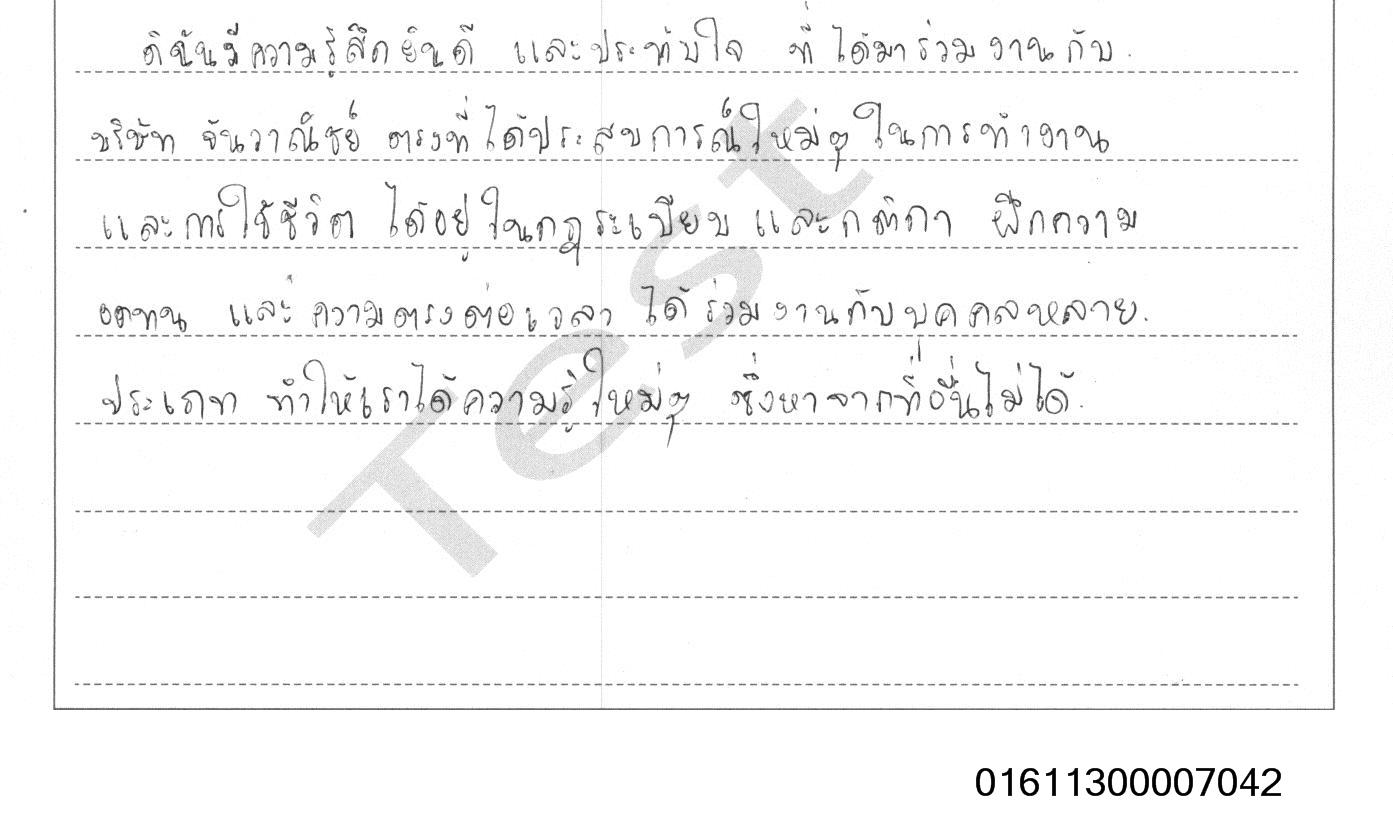 ดิฉันมีความรู้สึกยินดี และประทับใจ ที่ได้มาร่วมงานกับ
บริษัท จันวาณิชย์ ตรงที่ได้ประสบการณ์ใหม่ๆ ในการทำงาน
และการใช้ชีวิต ได้อยู่ในกฎระเบียบ และกติกา ฝึกความ
อดทน และความตรงต่อเวลา ได้ร่วมงานกับบุคคลหลาย
ประเภท ทำให้เราได้ความรู้ใหม่ๆ ซึ่งหาจากที่อื่นไม่ได้.
Test
01611300007042